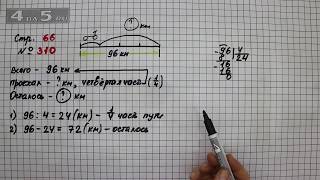 4 на 5.ru
Стр. 66
№ 310
? км
96 км
96 4
8 24
16
16
0
Всего - 96 км
Проехал - ? км, четвёртая часть (1/4)
Осталось - ? км
1) 96 : 4 = 24 (км) - 1/4 часть пути
2) 96 - 24 = 72 (км) - осталось